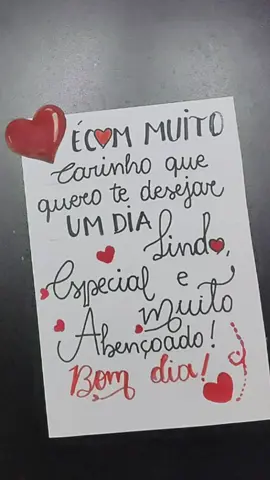 É COM MUITO
Carinho que
quero te desejar
UM DIA Lindo,
Especial e
Muito
Abençoado!
Bom dia!